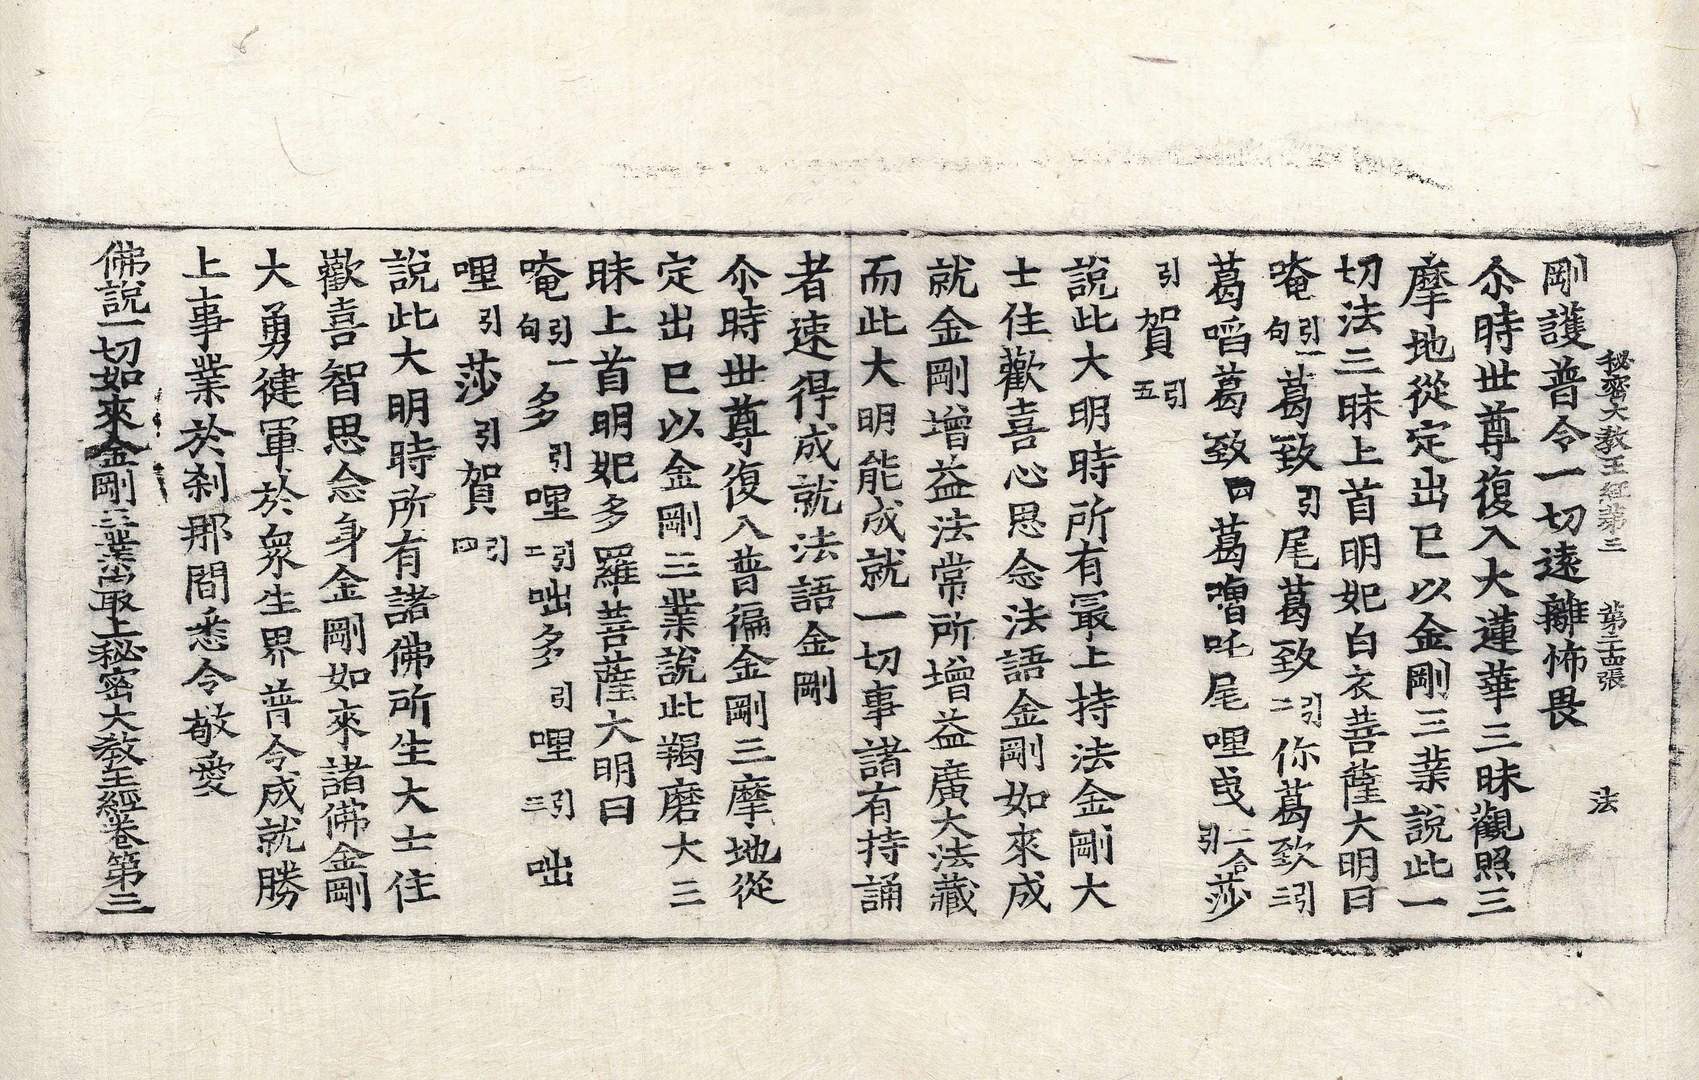 秘密大教王經第三　第二十四張　法
剛護普令一切遠離怖畏
尒時世尊復入大蓮華三昧觀照三
摩地從定出已以金剛三業說此一
切法三昧上首明妃白衣菩薩大明曰
唵引一句葛致引尾葛致引二你葛致引三
葛㗖葛致四葛嚕吒尾哩曳二合引莎
引賀引五
說此大明時所有最上持法金剛大
士住歡喜心思念法語金剛如來成
就金剛增益法常所增益廣大法藏
而此大明能成就一切事諸有持誦
者速得成就法語金剛
尒時世尊復入普徧金剛三摩地從
定出已以金剛三業說此羯磨大三
昧上首明妃多羅菩薩大明曰
唵引一句多引哩引二咄多引哩引三咄
哩引莎引賀引四
說此大明時所有諸佛所生大士住
歡喜智思念身金剛如來諸佛金剛
大勇健軍於衆生界普令成就勝
上事業於刹那間悉令敬愛
佛說一切如來金剛三業最上秘密大教王經卷第三